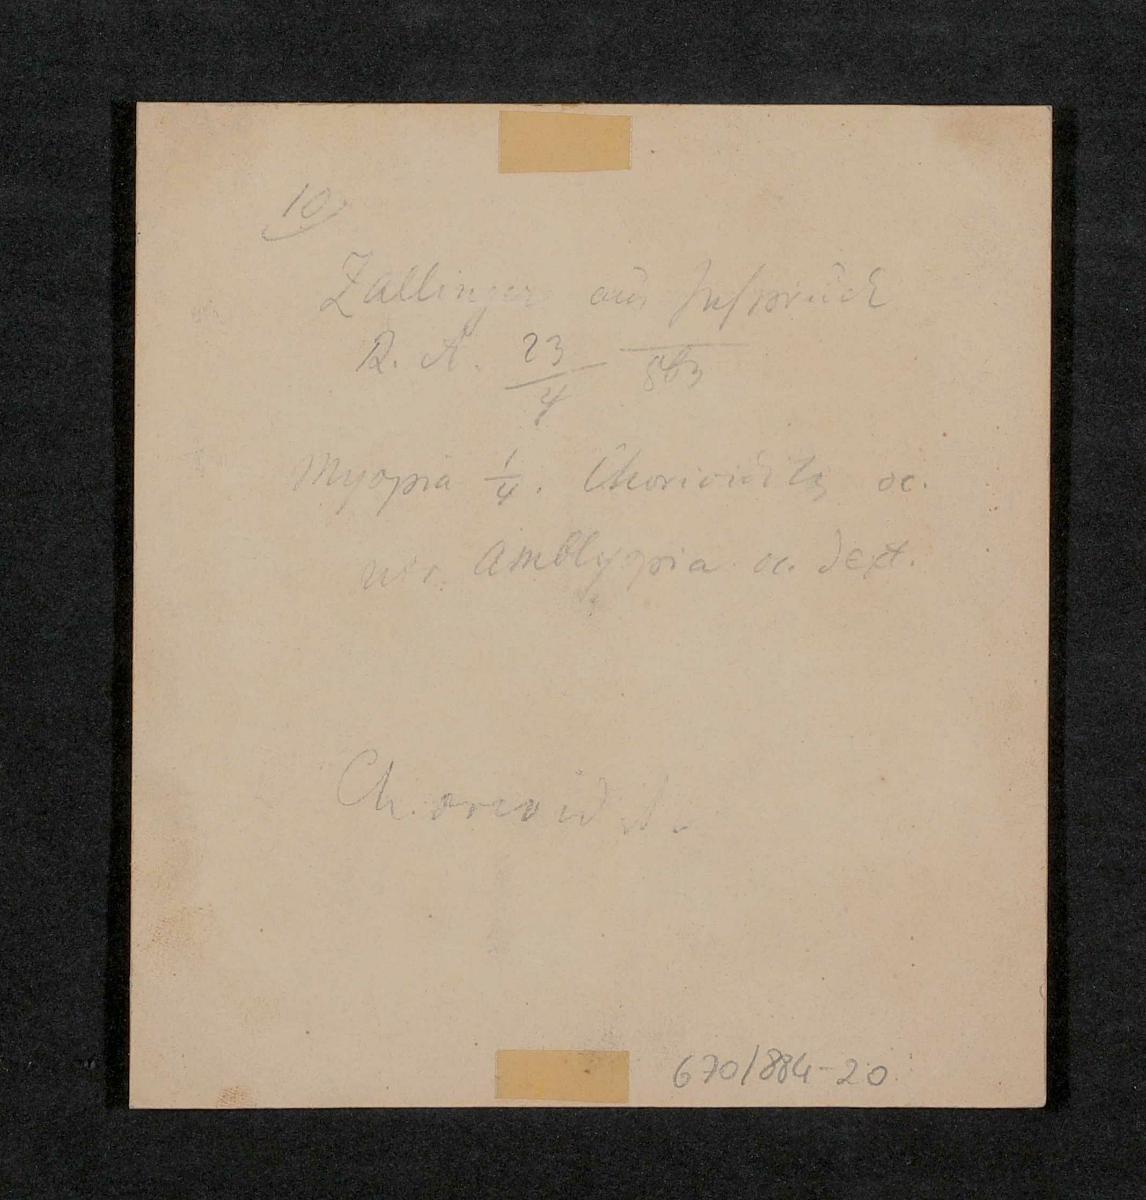 10)
Zallinger aus Insprück
R. A. 23/4 863
Myopia 1/4. Chorioiditis oc.
utr. Amblyopia oc. dext.
Chorioid
670/884-20